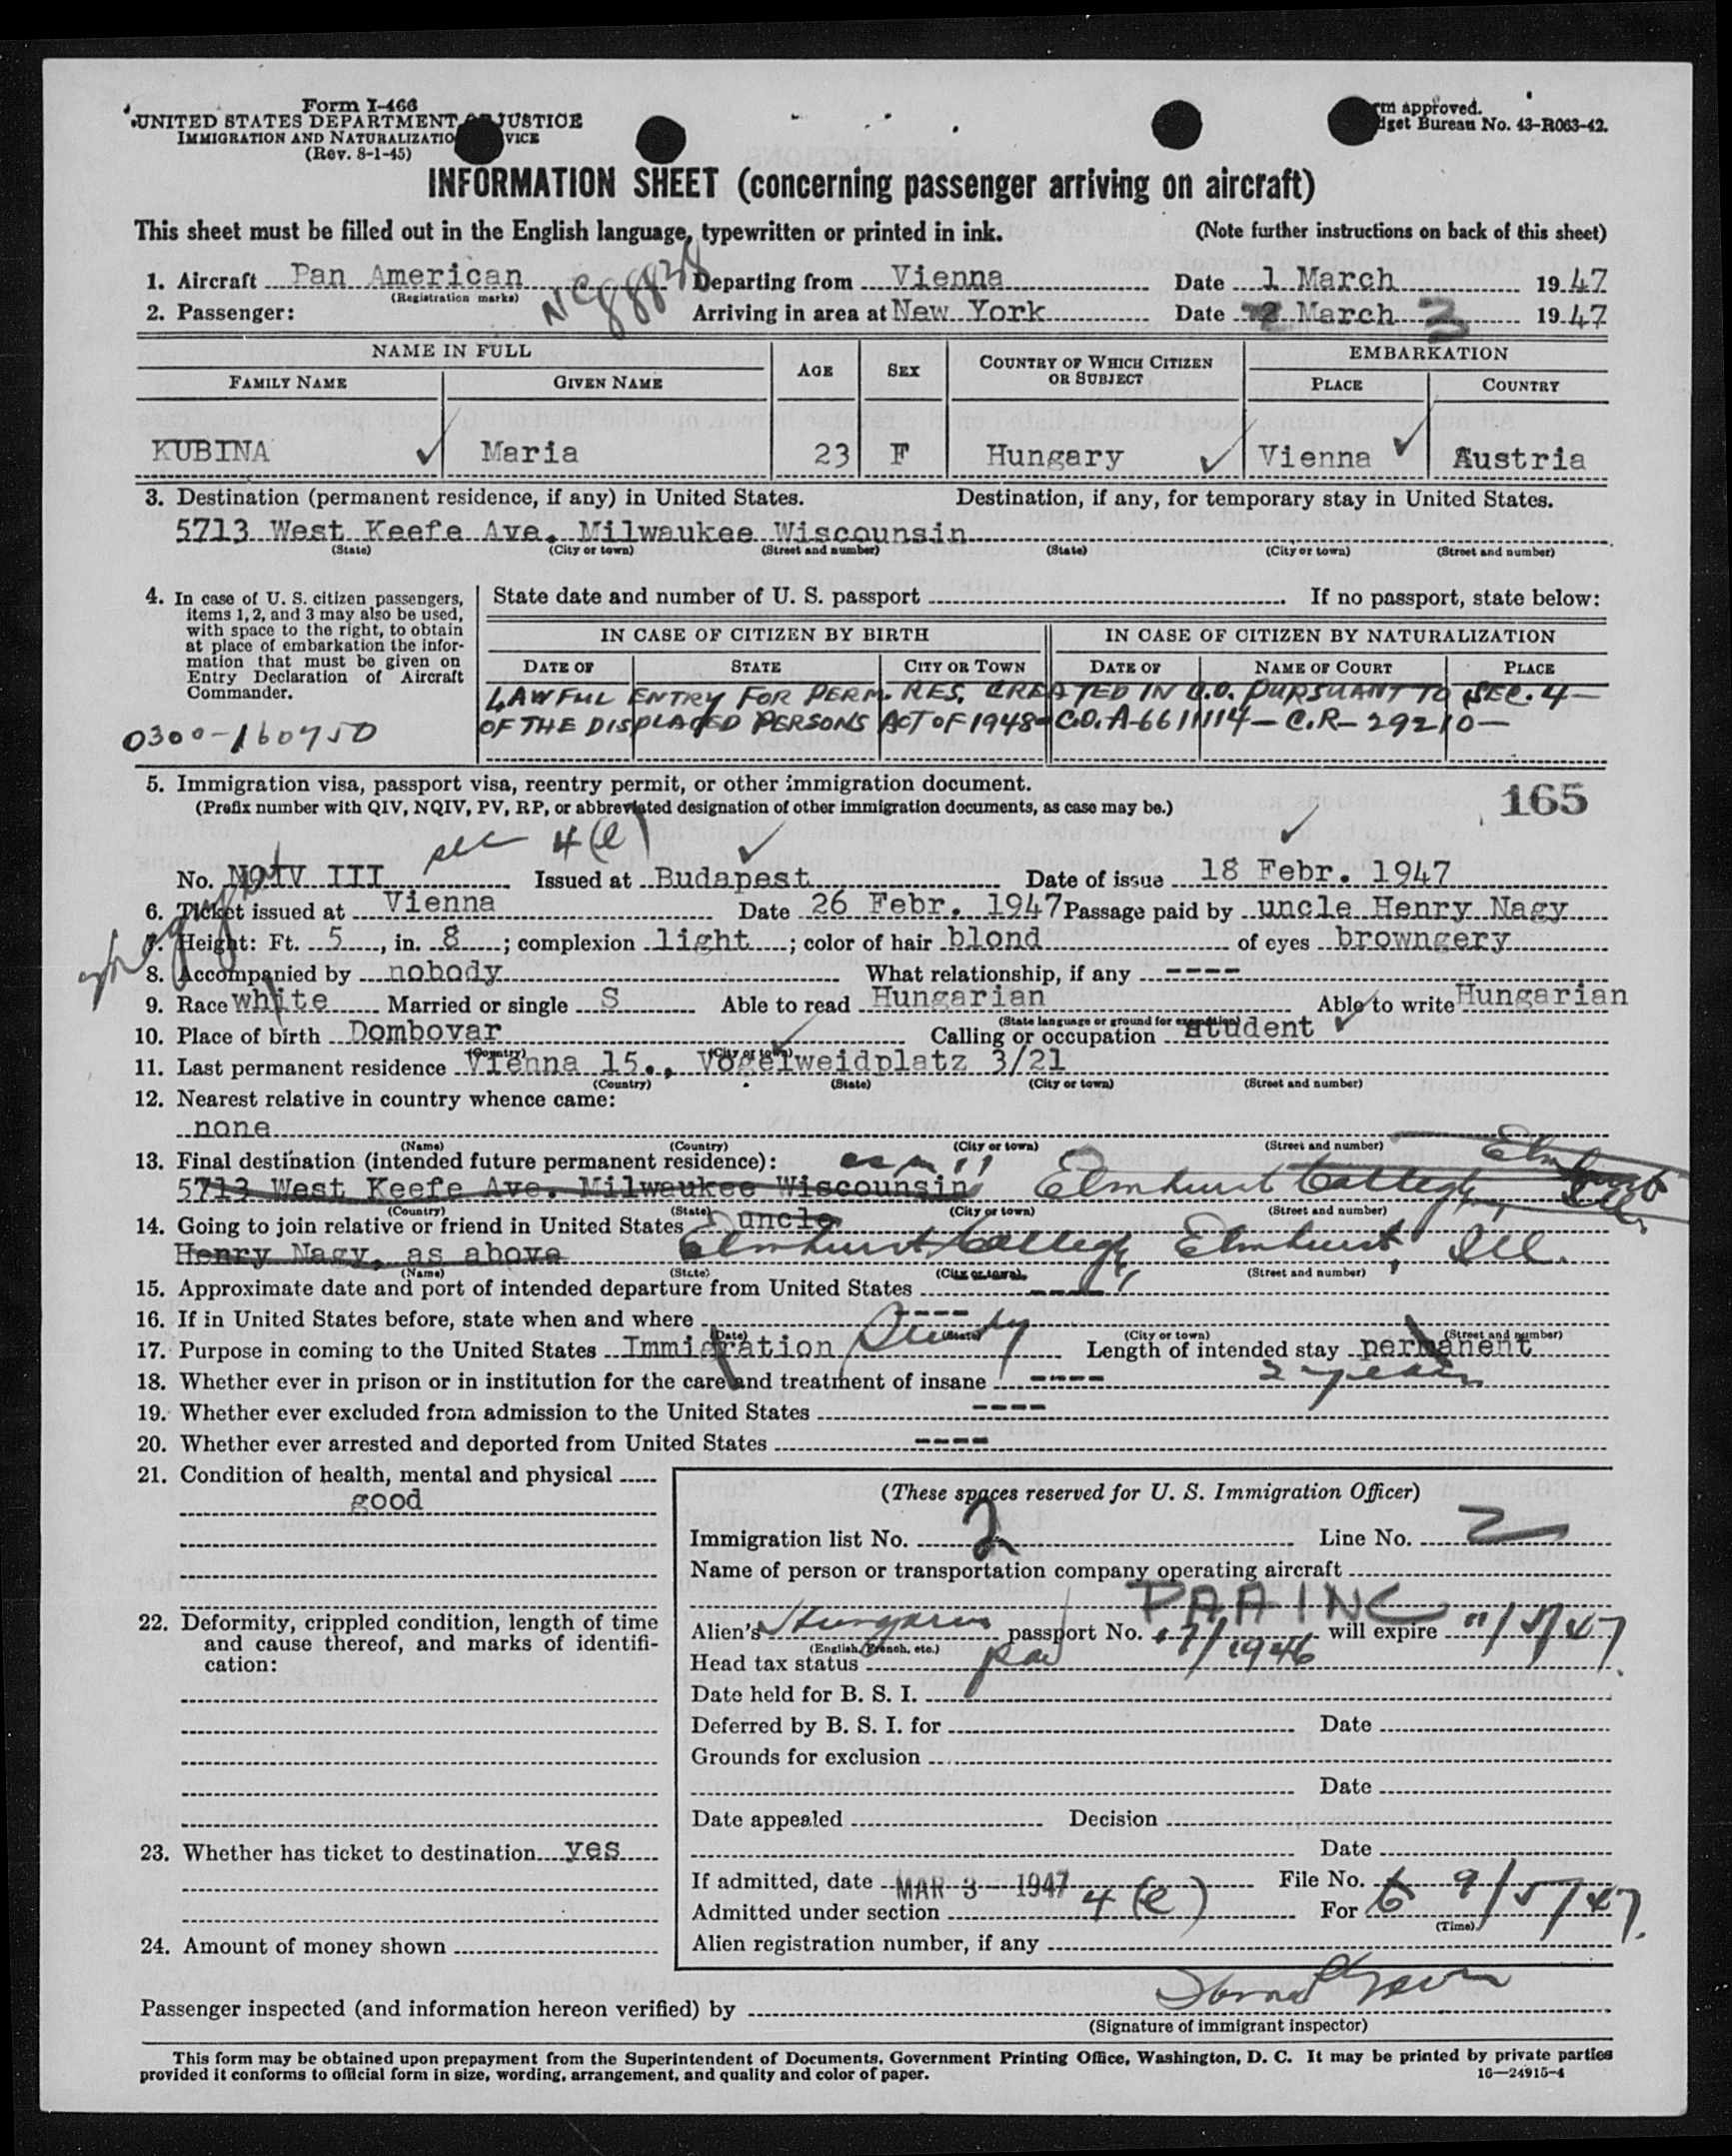 Form I-466
UNITED STATES DEPARTMENT OF JUSTICE
IMMIGRATION AND NATURALIZATIO VICE
(Rev. 8-1-45)
rm approved.
dget Bureau No. 43-R063-42.
INFORMATION SHEET (concerning passenger arriving on aircraft)
This sheet must be filled out in the English language, typewritten or printed in ink. (Note further instructions on back of this sheet)
1. Aircraft Pan American NC 88838 Departing from Vienna Date 1 March 1947
(Registration marks)
2. Passenger: Arriving in area at New York Date 2 March 3 1947
NAME IN FULL AGE SEX COUNTRY OF WHICH CITIZEN OR SUBJECT EMBARKATION
FAMILY NAME GIVEN NAME PLACE COUNTRY
KUBINA Maria 23 F Hungary Vienna Austria
3. Destination (permanent residence, if any) in United States. Destination, if any, for temporary stay in United States.
5713 West Keefe Ave. Milwaukee Wiscounsin
(State) (City or town) (Street and number) (State) (City or town) (Street and number)
4. In case of U. S. citizen passengers, items 1, 2, and 3 may also be used, with space to the right, to obtain at place of embarkation the information that must be given on Entry Declaration of Aircraft Commander.
State date and number of U. S. passport If no passport, state below:
IN CASE OF CITIZEN BY BIRTH IN CASE OF CITIZEN BY NATURALIZATION
DATE OF STATE CITY OR TOWN DATE OF NAME OF COURT PLACE
LAWFUL ENTRY FOR PERM. RES. CREATED IN C.O. PURSUANT TO SEC. 4—
OF THE DISPLACED PERSONS ACT OF 1948- C.O. A-6611114 — C.R- 29210 —
0300-160750
5. Immigration visa, passport visa, reentry permit, or other immigration document.
(Prefix number with QIV, NQIV, PV, RP, or abbreviated designation of other immigration documents, as case may be.)
165
sec 4(e)
No. NQIV III Issued at Budapest Date of issue 18 Febr. 1947
6. Ticket issued at Vienna Date 26 Febr. 1947 Passage paid by uncle Henry Nagy
7. Height: Ft. 5, in. 8; complexion light; color of hair blond of eyes browngery
8. Accompanied by nobody What relationship, if any ----
9. Race white Married or single S Able to read Hungarian Able to write Hungarian
(State language or ground for exemption)
10. Place of birth Dombovar Calling or occupation student
(Country) (City or town)
11. Last permanent residence Vienna 15., Vogelweidplatz 3/21
(Country) (State) (City or town) (Street and number)
12. Nearest relative in country whence came:
none
(Name) (Country) (City or town) (Street and number)
13. Final destination (intended future permanent residence):
5713 West Keefe Ave. Milwaukee Wiscounsin Elmhurst College, Elmhurst Ill.
(Country) (State) (City or town) (Street and number)
14. Going to join relative or friend in United States uncle
Henry Nagy, as above Elmhurst College, Elmhurst, Ill.
(Name) (State) (City or town) (Street and number)
15. Approximate date and port of intended departure from United States ----
16. If in United States before, state when and where ----
(Date) (State) (City or town) (Street and number)
17. Purpose in coming to the United States Immigration Study Length of intended stay permanent
2 years
18. Whether ever in prison or in institution for the care and treatment of insane ----
19. Whether ever excluded from admission to the United States ----
20. Whether ever arrested and deported from United States ----
21. Condition of health, mental and physical
good
22. Deformity, crippled condition, length of time and cause thereof, and marks of identification:
23. Whether has ticket to destination yes
24. Amount of money shown
(These spaces reserved for U. S. Immigration Officer)
Immigration list No. 2 Line No. 2
Name of person or transportation company operating aircraft
PAA INC
Alien's Hungarian passport No. 17/1946 will expire 11/5/47
(English, French, etc.)
Head tax status
Date held for B. S. I.
Deferred by B. S. I. for Date
Grounds for exclusion
Date
Date appealed Decision
Date
If admitted, date MAR 3 1947 File No.
Admitted under section 4(e) For to 9/5/47.
(Time)
Alien registration number, if any
Passenger inspected (and information hereon verified) by
(Signature of immigrant inspector)
This form may be obtained upon prepayment from the Superintendent of Documents, Government Printing Office, Washington, D. C. It may be printed by private parties
provided it conforms to official form in size, wording, arrangement, and quality and color of paper. 16—24915-4